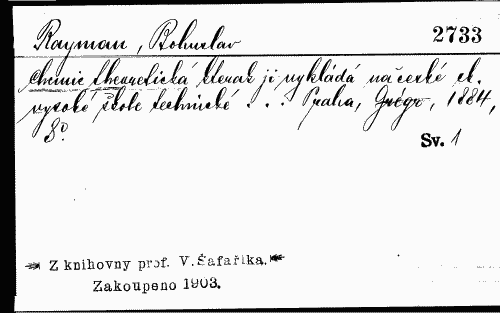 Rayman, Bohuslav 2733
Chemie theoretická kterak ji vykládá na české c.k.
vysoké škole technické . . . Praha, Grégr, 1884,
8°.
Sv. 1
Z knihovny prof. V. Šafaříka.
Zakoupeno 1903.